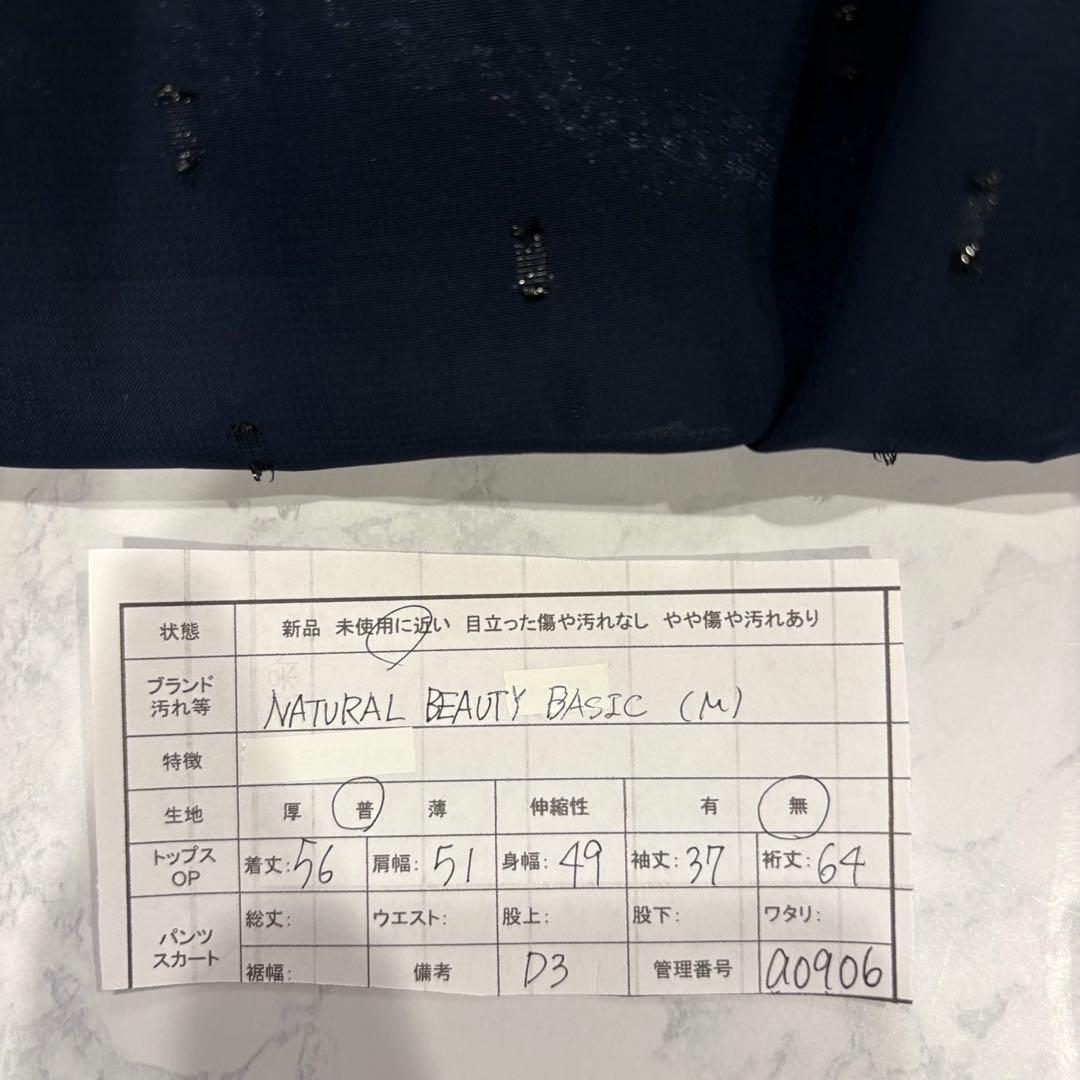 状態 新品 未使用に近い 目立った傷や汚れなし やや傷や汚れあり
ブランド
汚れ等
NATURAL BEAUTY BASIC (M)
特徴
生地 厚 普 薄 伸縮性 有 無
トップス
OP
着丈:56 肩幅:51 身幅:49 袖丈:37 裄丈:64
パンツ
スカート
総丈: ウエスト: 股上: 股下: ワタリ:
裾幅: 備考 D3 管理番号 a0906